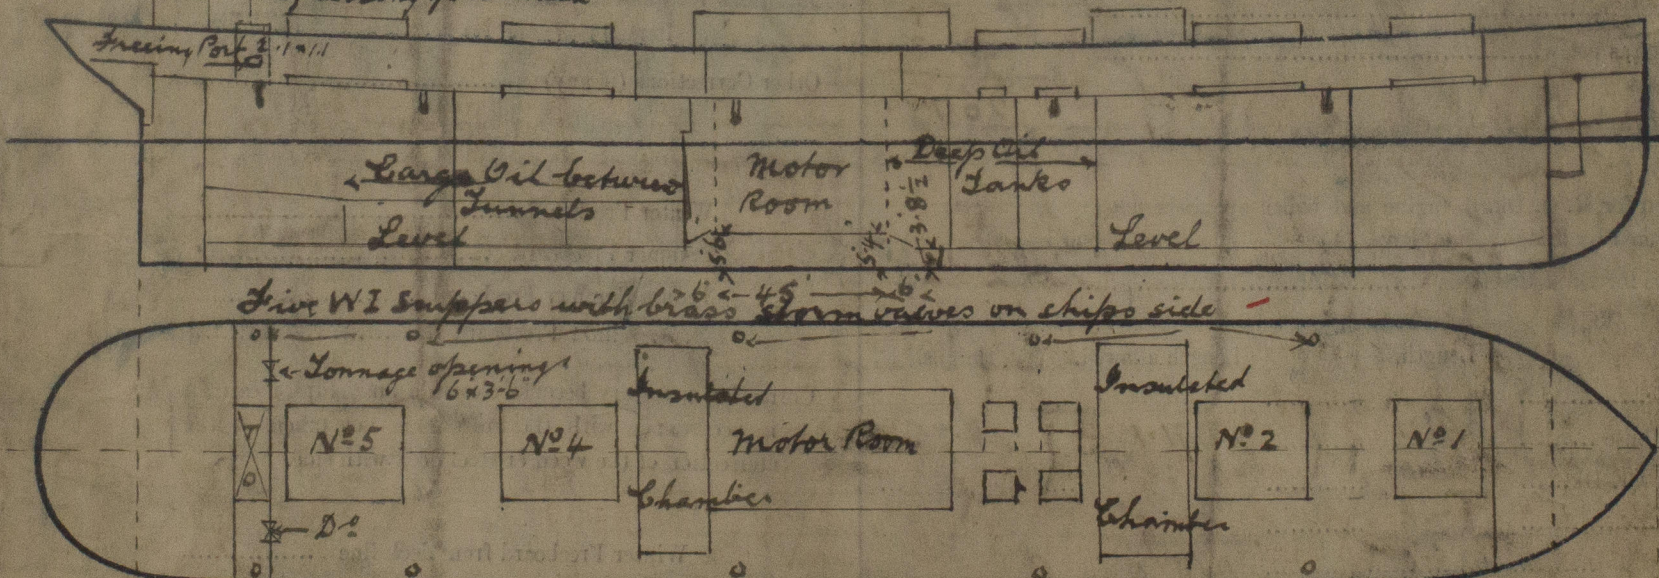 Freeing Port
Cargo Oil between
Tunnels
Level
Motor
Room
Deep Oil
Tanks
3'-8½
Level
5'-4
5'-4
6 ← 45 → 6
Five W I Scuppers with brass storm valves on ships side
Tonnage openings
6 x 3'-6"
Insulated
Chamber
Insulated
Chamber
Nº5
Nº4
Motor Room
Nº2
Nº1
Dº